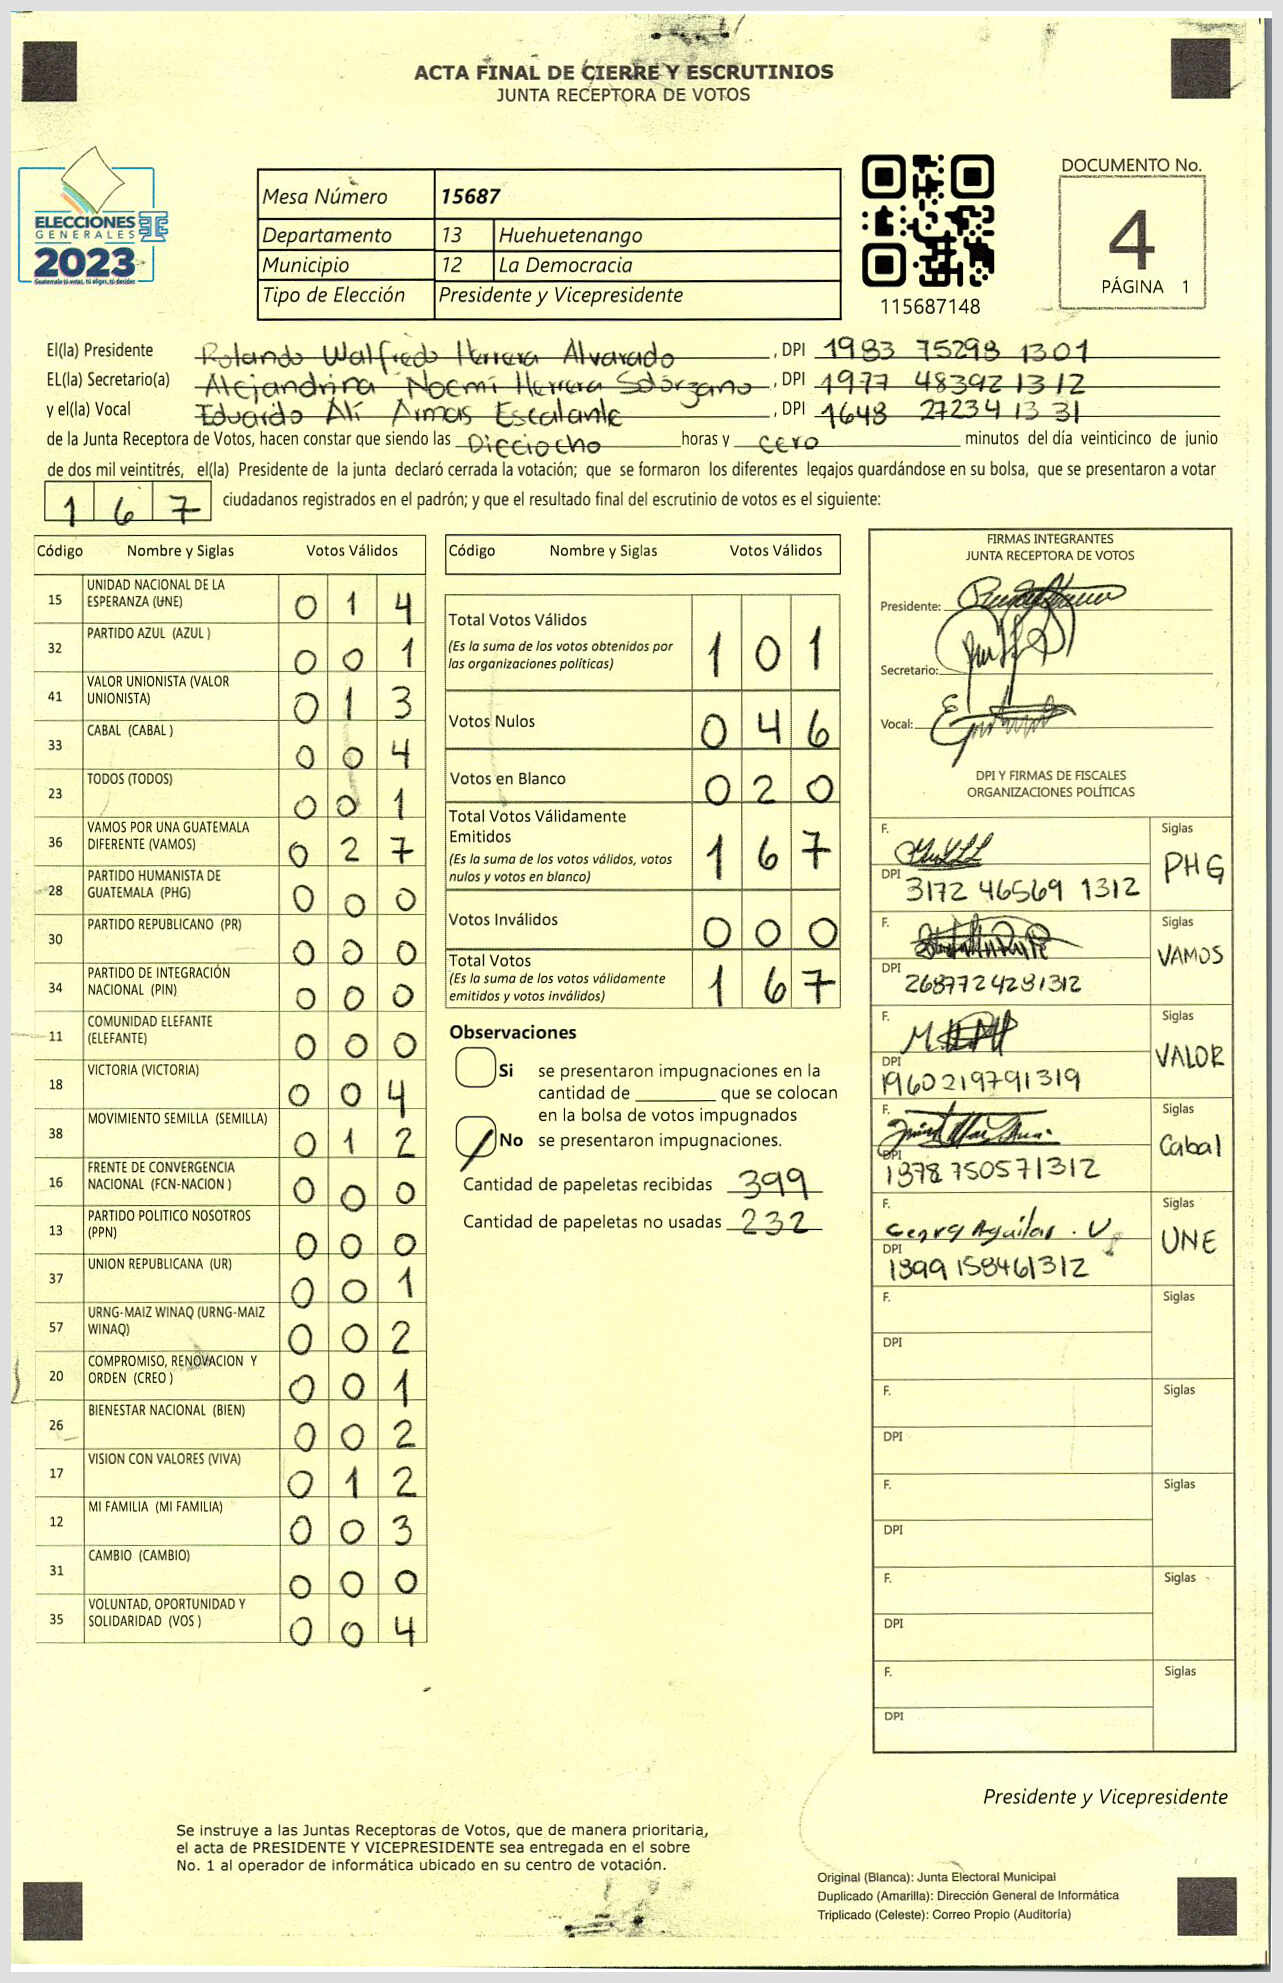 ACTA FINAL DE CIERRE Y ESCRUTINIOS
JUNTA RECEPTORA DE VOTOS
ELECCIONES
GENERALES
2023
Guatemala tú votas, tú eliges, tú decides
Mesa Número 15687
Departamento 13 Huehuetenango
Municipio 12 La Democracia
Tipo de Elección Presidente y Vicepresidente
115687148
DOCUMENTO No.
4
PÁGINA 1
El(la) Presidente Rolando Walfredo Herrera Alvarado, DPI 1983 75298 1301
EL(la) Secretario(a) Alejandrina Noemí Herrera Solórzano, DPI 1977 48392 1312
y el(la) Vocal Eduardo Alí Armas Escalante, DPI 1648 27234 1331
de la Junta Receptora de Votos, hacen constar que siendo las Dieciocho horas y cero minutos del día veinticinco de junio
de dos mil veintitrés, el(la) Presidente de la junta declaró cerrada la votación; que se formaron los diferentes legajos guardándose en su bolsa, que se presentaron a votar
1 6 7 ciudadanos registrados en el padrón; y que el resultado final del escrutinio de votos es el siguiente:
Código Nombre y Siglas Votos Válidos
15 UNIDAD NACIONAL DE LA ESPERANZA (UNE) 0 1 4
32 PARTIDO AZUL (AZUL ) 0 0 1
41 VALOR UNIONISTA (VALOR UNIONISTA) 0 1 3
33 CABAL (CABAL ) 0 0 4
23 TODOS (TODOS) 0 0 1
36 VAMOS POR UNA GUATEMALA DIFERENTE (VAMOS) 0 2 7
28 PARTIDO HUMANISTA DE GUATEMALA (PHG) 0 0 0
30 PARTIDO REPUBLICANO (PR) 0 0 0
34 PARTIDO DE INTEGRACIÓN NACIONAL (PIN) 0 0 0
11 COMUNIDAD ELEFANTE (ELEFANTE) 0 0 0
18 VICTORIA (VICTORIA) 0 0 4
38 MOVIMIENTO SEMILLA (SEMILLA) 0 1 2
16 FRENTE DE CONVERGENCIA NACIONAL (FCN-NACION ) 0 0 0
13 PARTIDO POLITICO NOSOTROS (PPN) 0 0 0
37 UNION REPUBLICANA (UR) 0 0 1
57 URNG-MAIZ WINAQ (URNG-MAIZ WINAQ) 0 0 2
20 COMPROMISO, RENOVACION Y ORDEN (CREO ) 0 0 1
26 BIENESTAR NACIONAL (BIEN) 0 0 2
17 VISION CON VALORES (VIVA) 0 1 2
12 MI FAMILIA (MI FAMILIA) 0 0 3
31 CAMBIO (CAMBIO) 0 0 0
35 VOLUNTAD, OPORTUNIDAD Y SOLIDARIDAD (VOS ) 0 0 4
Código Nombre y Siglas Votos Válidos
Total Votos Válidos 1 0 1
(Es la suma de los votos obtenidos por
las organizaciones políticas)
Votos Nulos 0 4 6
Votos en Blanco 0 2 0
Total Votos Válidamente
Emitidos 1 6 7
(Es la suma de los votos válidos, votos
nulos y votos en blanco)
Votos Inválidos 0 0 0
Total Votos 1 6 7
(Es la suma de los votos válidamente
emitidos y votos inválidos)
Observaciones
Si se presentaron impugnaciones en la
cantidad de ________ que se colocan
en la bolsa de votos impugnados
No se presentaron impugnaciones.
Cantidad de papeletas recibidas 399
Cantidad de papeletas no usadas 232
FIRMAS INTEGRANTES
JUNTA RECEPTORA DE VOTOS
Presidente:
Secretario:
Vocal:
DPI Y FIRMAS DE FISCALES
ORGANIZACIONES POLÍTICAS
F. Siglas
DPI 3172 46569 1312 PHG
F. Siglas
DPI 2687724281312 VAMOS
F. Siglas
DPI 1960219791319 VALOR
F. Siglas
DPI 1378 750571312 Cabal
F. Siglas
DPI 1899 158461312 UNE
F. Siglas
DPI
F. Siglas
DPI
F. Siglas
DPI
F. Siglas
DPI
F. Siglas
DPI
Presidente y Vicepresidente
Se instruye a las Juntas Receptoras de Votos, que de manera prioritaria,
el acta de PRESIDENTE Y VICEPRESIDENTE sea entregada en el sobre
No. 1 al operador de informática ubicado en su centro de votación.
Original (Blanca): Junta Electoral Municipal
Duplicado (Amarilla): Dirección General de Informática
Triplicado (Celeste): Correo Propio (Auditoría)